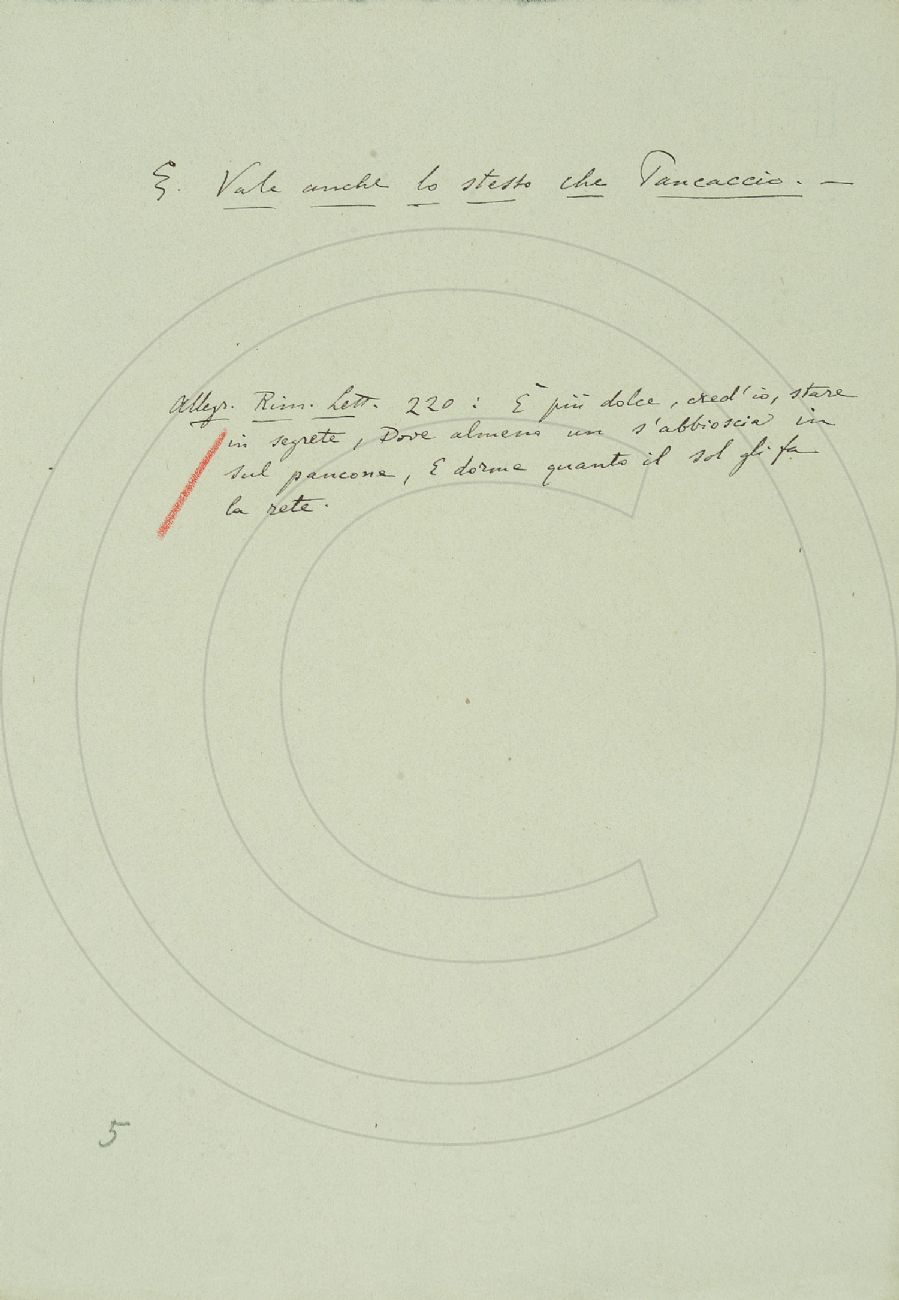 ξ. Vale anche lo stesso che Pancaccio. —
Allegr. Rim. Lett. 220 : È più dolce, cred'io, stare
in segrete, Dove almeno un s'abbioscia in
sul pancone, E dorme quanto il sol gli fa
la rete.
5